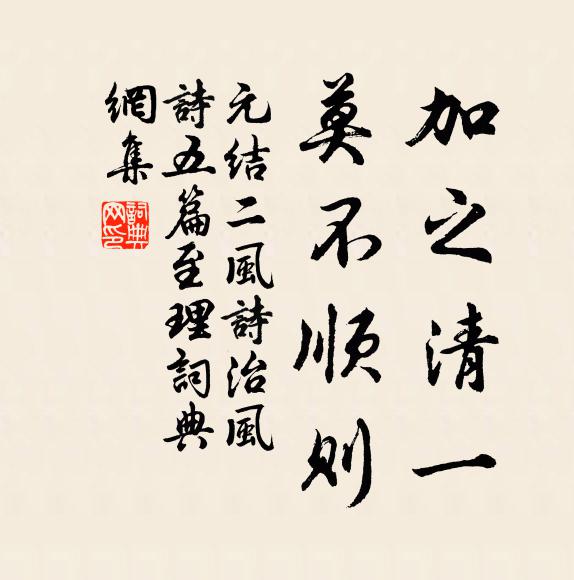 加之清一
莫不順則
元结二風詩治風
詩五篇至理詞典
網集
詞典
网印